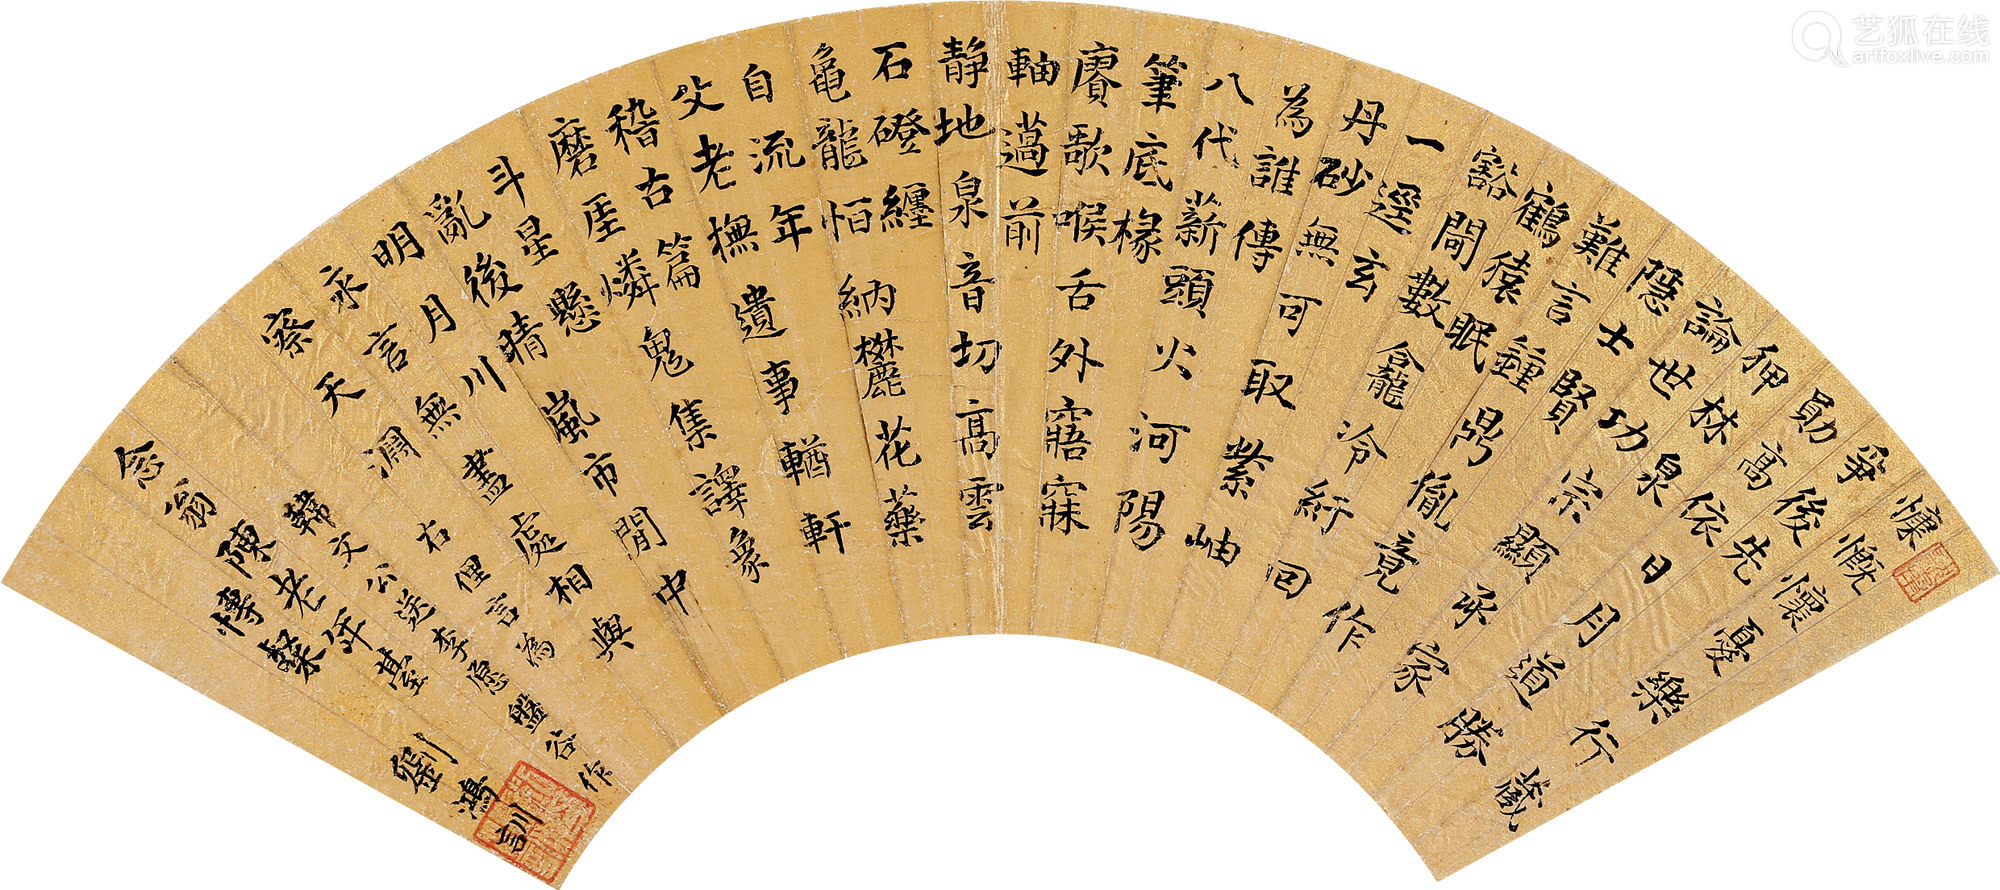 慷慨懷憂樂行藏
爭後先
勛高依日月道勝
狎林泉
論世功宗顯承家
隱士賢
難言鍾鼎胤竟作
鶴猿眠
豁閒數龕冷紆回
一逕玄
丹砂無可取紫岫
為誰傳
八代薪頭火河陽
筆底椽
賡歌喉舌外寤寐
軸邁前
靜地泉音切高雲
石磴纏
龜龍恒納麓花藥
自流年
父老撫遺事輶軒
稽古篇
磨崖憐鬼集譯象
斗星懸
亂後晴嵐市閒中
明月川
永言無盡處相與
察天淵
右俚言為
韓文公送李愿盤谷作
念翁陳老年臺
博粲
劉鴻訓
艺狐在线
artfoxlive.com